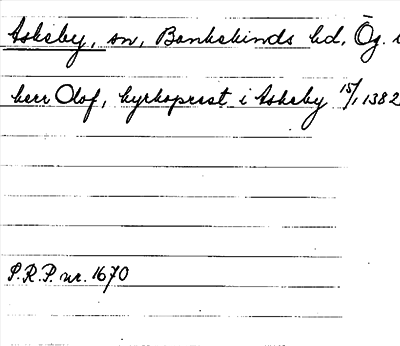 Askeby, sn, Bankekinds hd, Ög.
herr Olof, kyrkoprest i Askeby 15/1 1382
S.R.P. nr. 1670